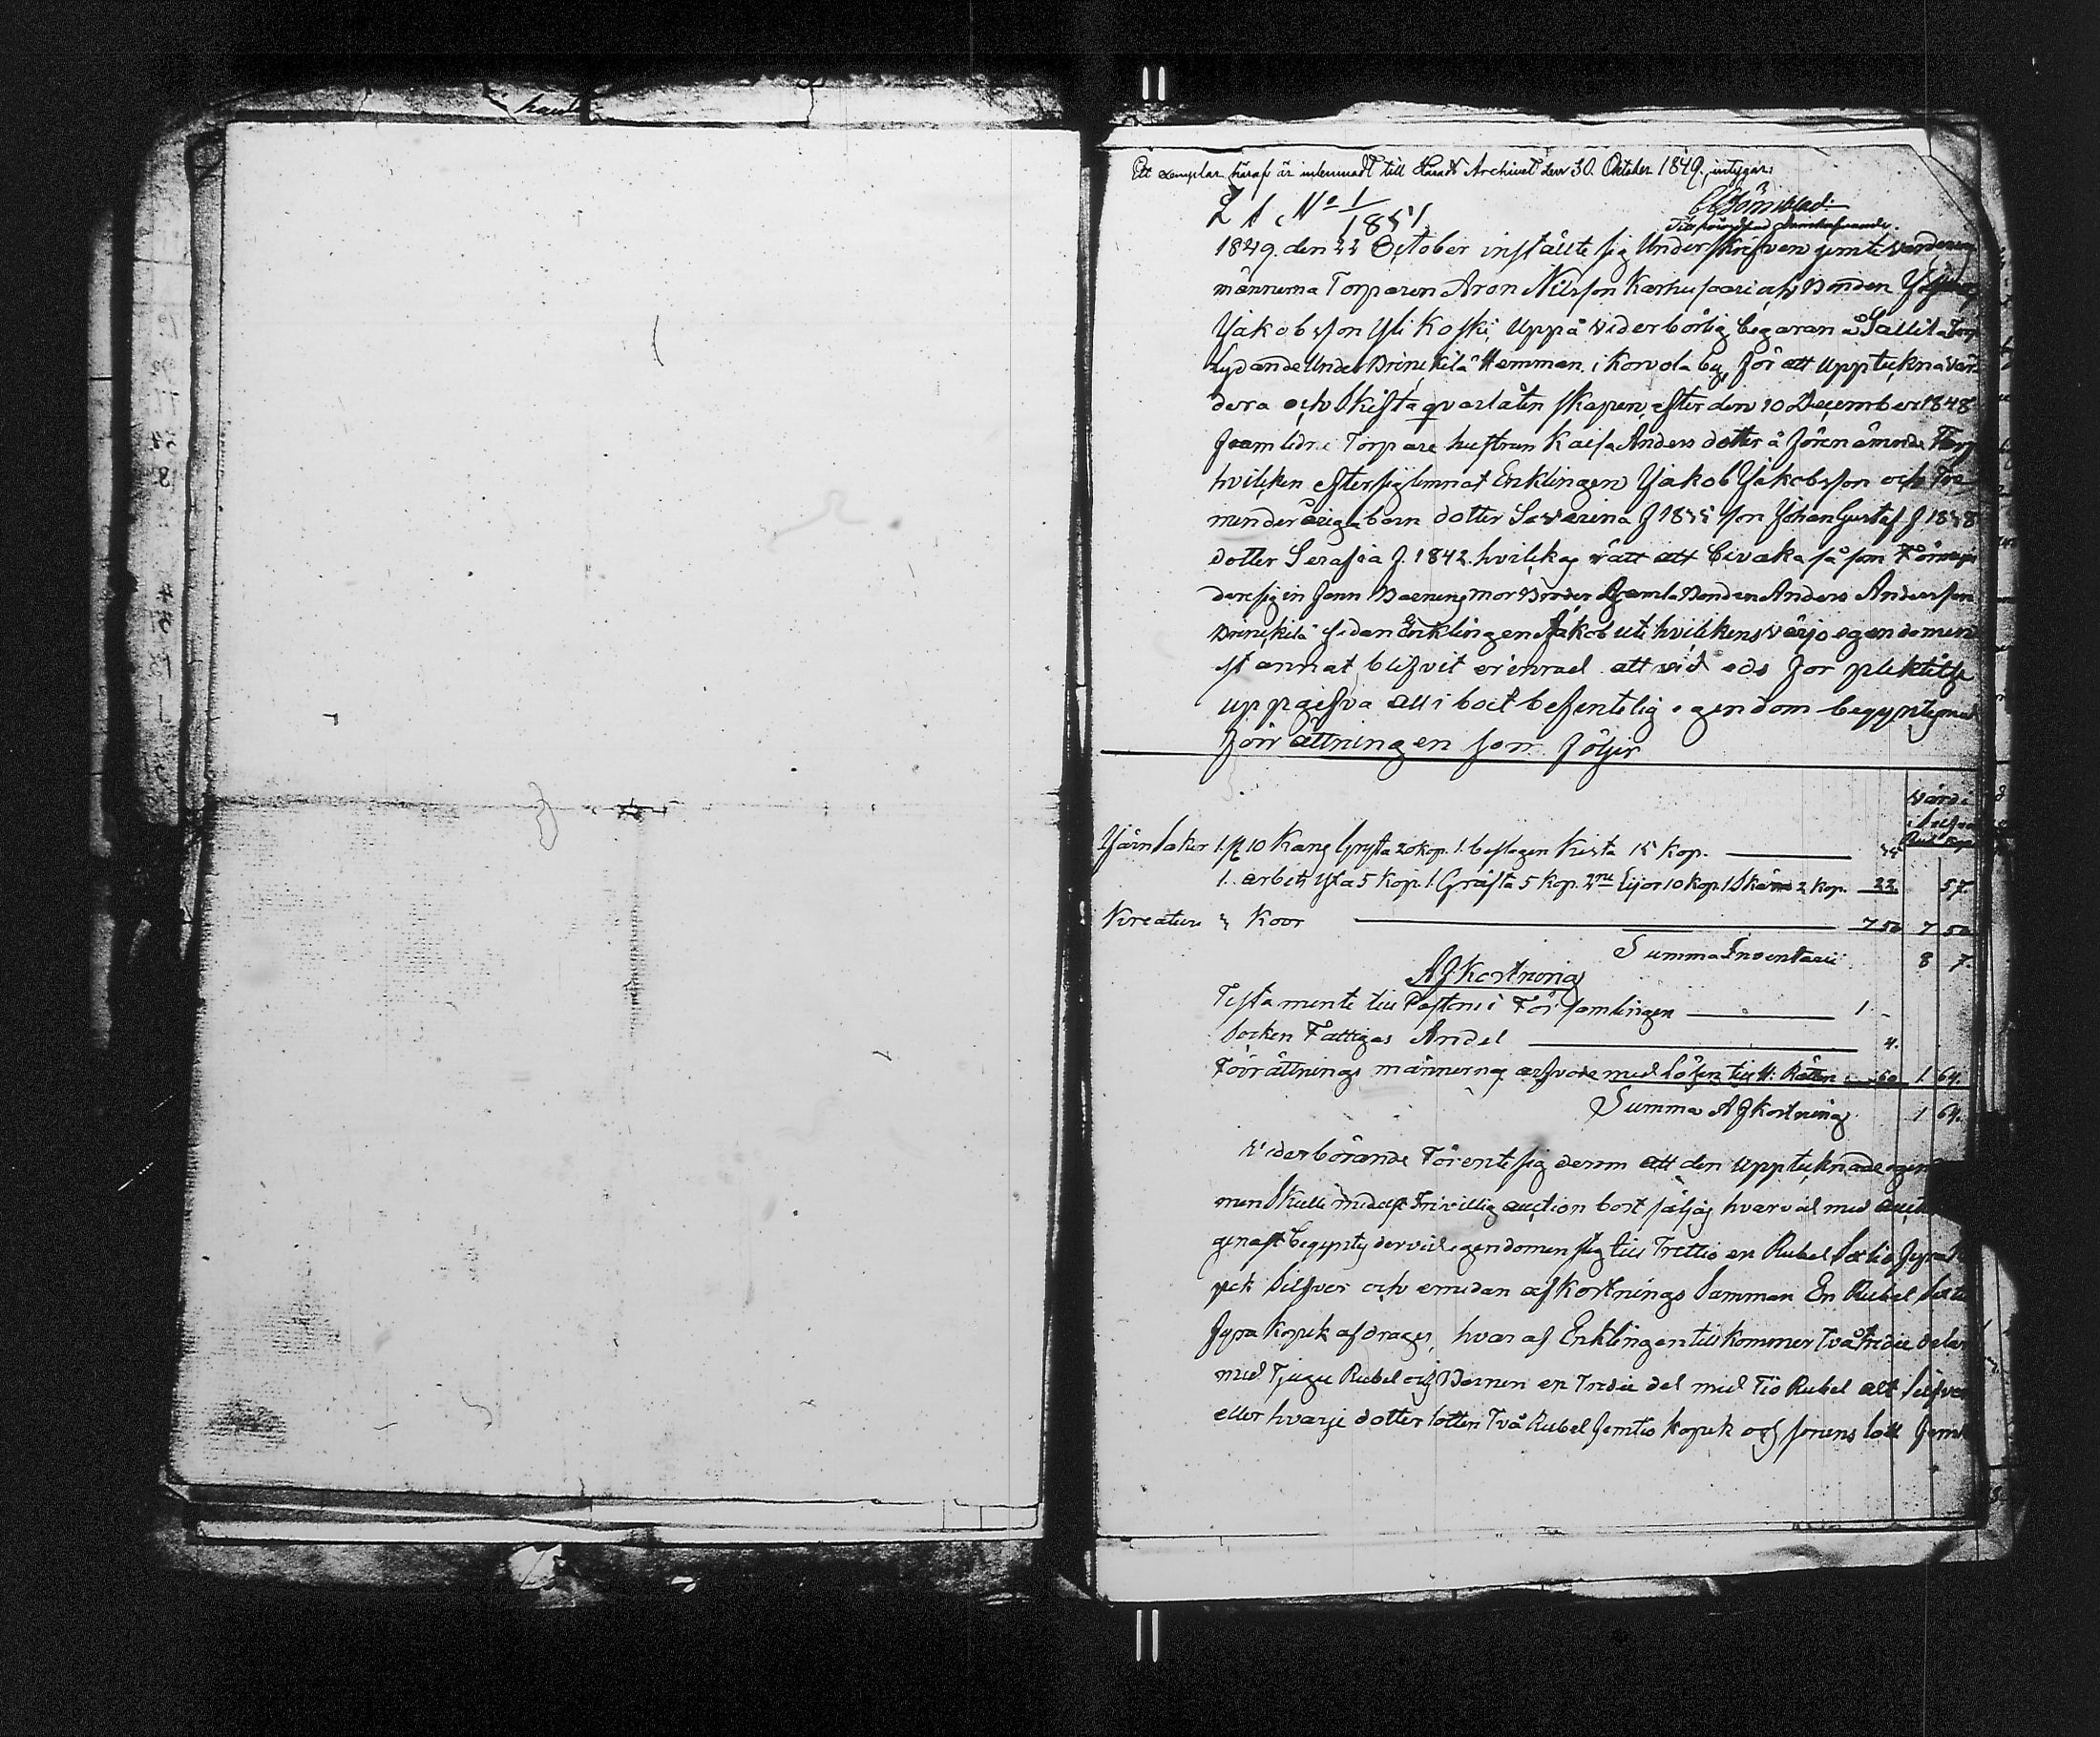 Ett exemplar häraf är inlemnadt till Härads Archivet den 30. Oktober 1849, intygar:
L A No 1/1851
Tillförordnad Domhafvande.
1849. den 22 October inställte sig Underskrifven jemte värderings
männerna Torparen Aron Nilsson Karhusaari och Bonden
Jakobsson Yli Koski, uppå vederbörlig begäran å Sallila Torp
Lydande Under Brinckilä Hemman i Korvola by, för att Upptekna vär
dera och Skifta qvarlåtenskapen, efter den 10 December 1848
framlidne Torpare hustrun Kaisa Andersdotter å förenämnde Torp
hvilcken efter sig lemnat Enklingen Jakob Jakobsson och Tre
minderåriga barn dotter Severina f 1835 son Johan Gustaf f 1838
dotter Serafia f. 1842. hvilckas rätt att bevaka så som
dere sig in fann Barnens morbroder gamla Bonden Anders Andersson
Brinckilä sedan Enklingen Jakob uti hvilckens värjo egendomen
stannat blifvit erinrad att vid eds förplicktelse
uppgifva allt i boet befintelig egendom begyntes
förrättningen som följer
Värde
i Silfver
Rub. Kop.
Järnsaker 1 st 10 Kans Gryta 20 kop. 1. beslagen Kista 15 kop. 35
1. arbets yxa 5 Kop. 1. Gräfta 5 kop. 2ne Lijor 10 kop. 1 Skära 2 kop. 22 57.
Kreatur 1 Koor 7 50 7 50
Summa Inventarii 8 7.
Afkortning
Testamente till Pastorn i Församlingen 1 -
Socken Fattigas Andel 4.
Förrättnings männernas arfvode med Lösen till H. Rätten 60 1. 64.
Summa Afkortning 1 64.
Vederbörande Förente sig derom att den upptecknade egendo
men Skulle medelst Frivillig auction bortsäljas hvarvid med auction
genast begyntes dervid egendomen steg till Trettio en Rubel Sextio fyra Ko
pek Silfver och emedan afkortnings Summan En Rubel Sextio
fyra Kopek afdrages, hvar af Enklingen tillkommer två tredie delar
med Tjugu Rubel och Barnen en Tredie del med Tio Rubel allt Silfver
eller hvarje dotter lotten Två Rubel femtio kopek och sonens lott Fem